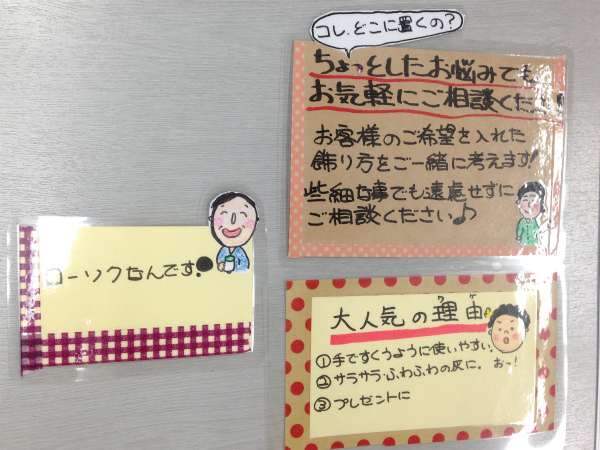 コレ、どこに置くの?
ちょっとしたお悩みでも
お気軽にご相談くださ
お客様のご希望を入れた
飾り方をご一緒に考えます!
些細な事でも遠慮せずに
ご相談ください♪
ローソクなんです!
大人気の理由
ワケ
①手ですくうように使いやすい。
②サラサラ・ふわふわの灰に。
おっ!
③プレゼントに